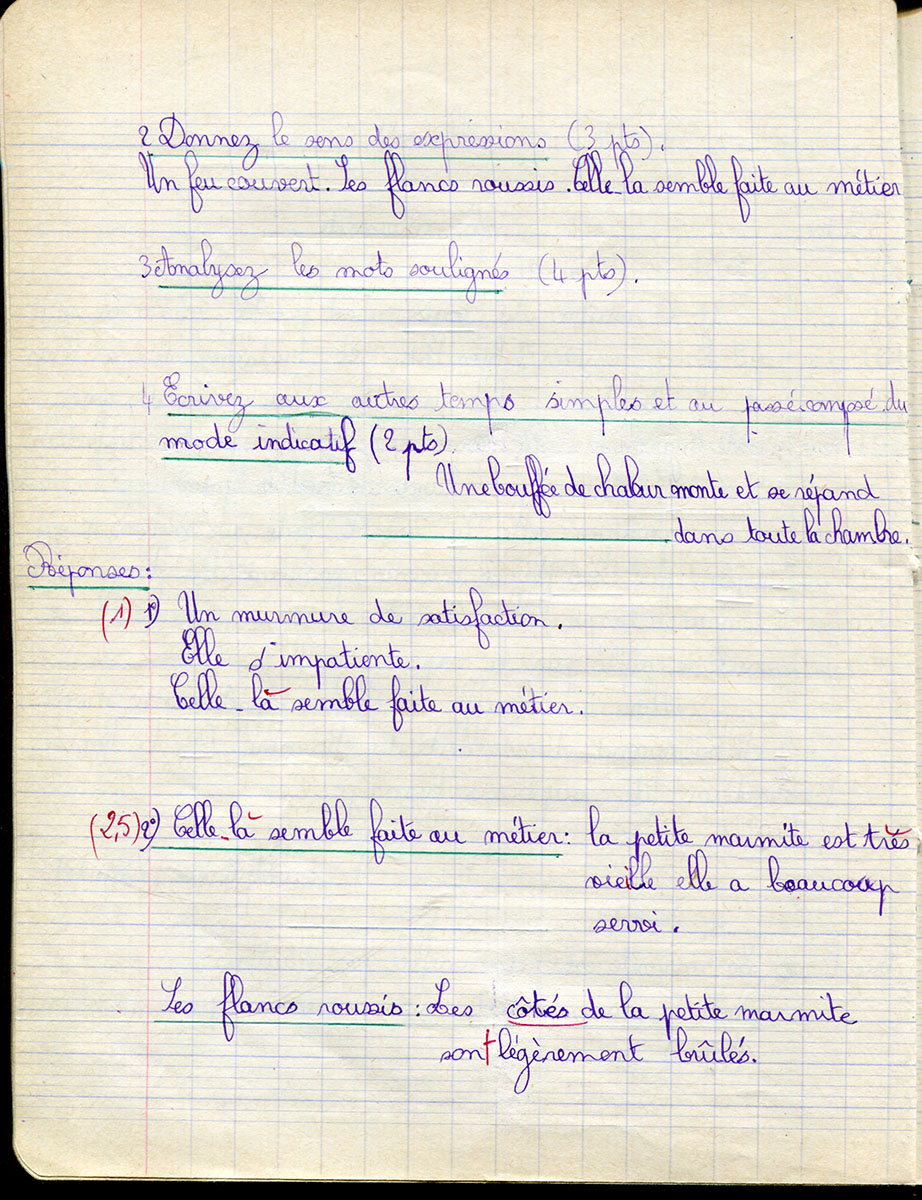 2 Donnez le sens des expressions (3 pts).
Un feu couvert. Les flancs roussis. Celle-la semble faite au métier
3 Analysez les mots soulignés (4 pts).
4 Ecrivez aux autres temps simples et au passé composé du
mode indicatif (2 pts).
Une bouffée de chaleur monte et se répand
dans toute la chambre.
Réponses:
(1) 1°) Un murmure de satisfaction.
Elle s'impatiente.
Celle-là semble faite au métier.
(2,5) 2°) Celle-là semble faite au métier: la petite marmite est très
vieille elle a beaucoup
servi.
Les flancs roussis: Les côtés de la petite marmite
sont légèrement brûlés.